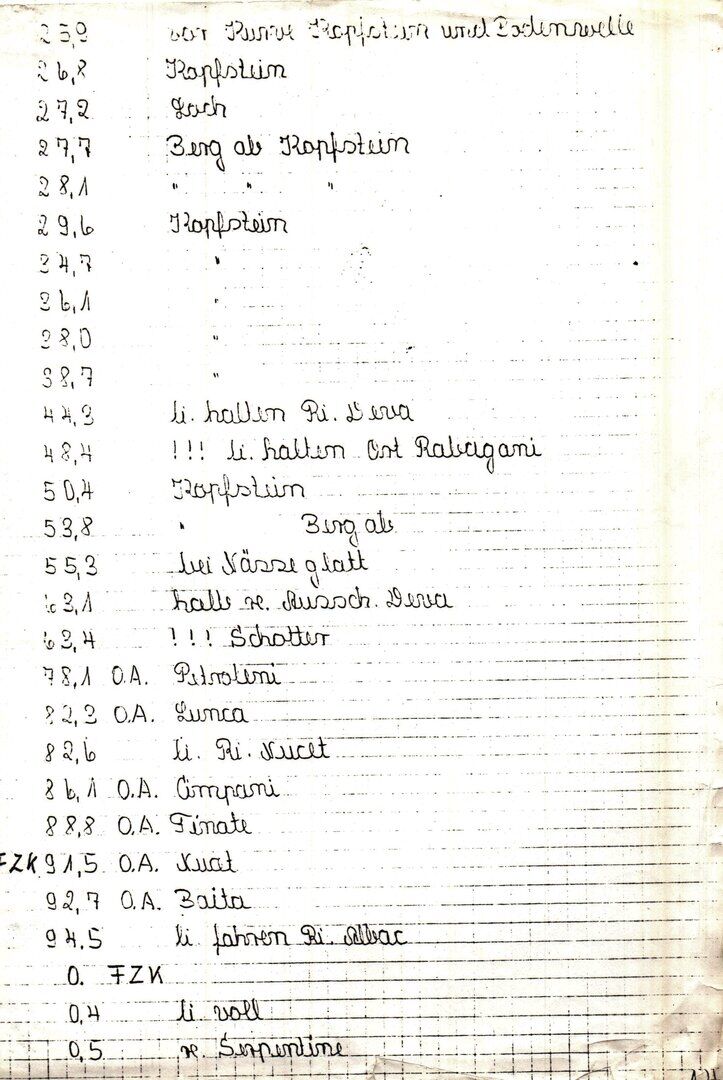 25,9 vor Kurve Kopfstein und Bodenwelle
26,8 Kopfstein
27,2 Loch
27,7 Berg ab Kopfstein
28,1 " " "
29,6 Kopfstein
34,7 "
36,1 "
38,0 "
38,7 "
44,3 li. halten Ri. Deva
48,4 !!! li. halten Ort Rabagani
50,4 Kopfstein
53,8 " Berg ab
55,3 bei Nässe glatt
63,1 halb re. Aussch. Deva
63,4 !!! Schotter
78,1 O.A. Petroleni
82,3 O.A. Lunca
82,6 li. Ri. Nucet
86,1 O.A. Cimpani
88,8 O.A. Finate
FZK 91,5 O.A. Nuat
92,7 O.A. Baita
94,5 li fahren Ri. Albac
0. FZK
0,4 li voll
0,5 re. Serpentine